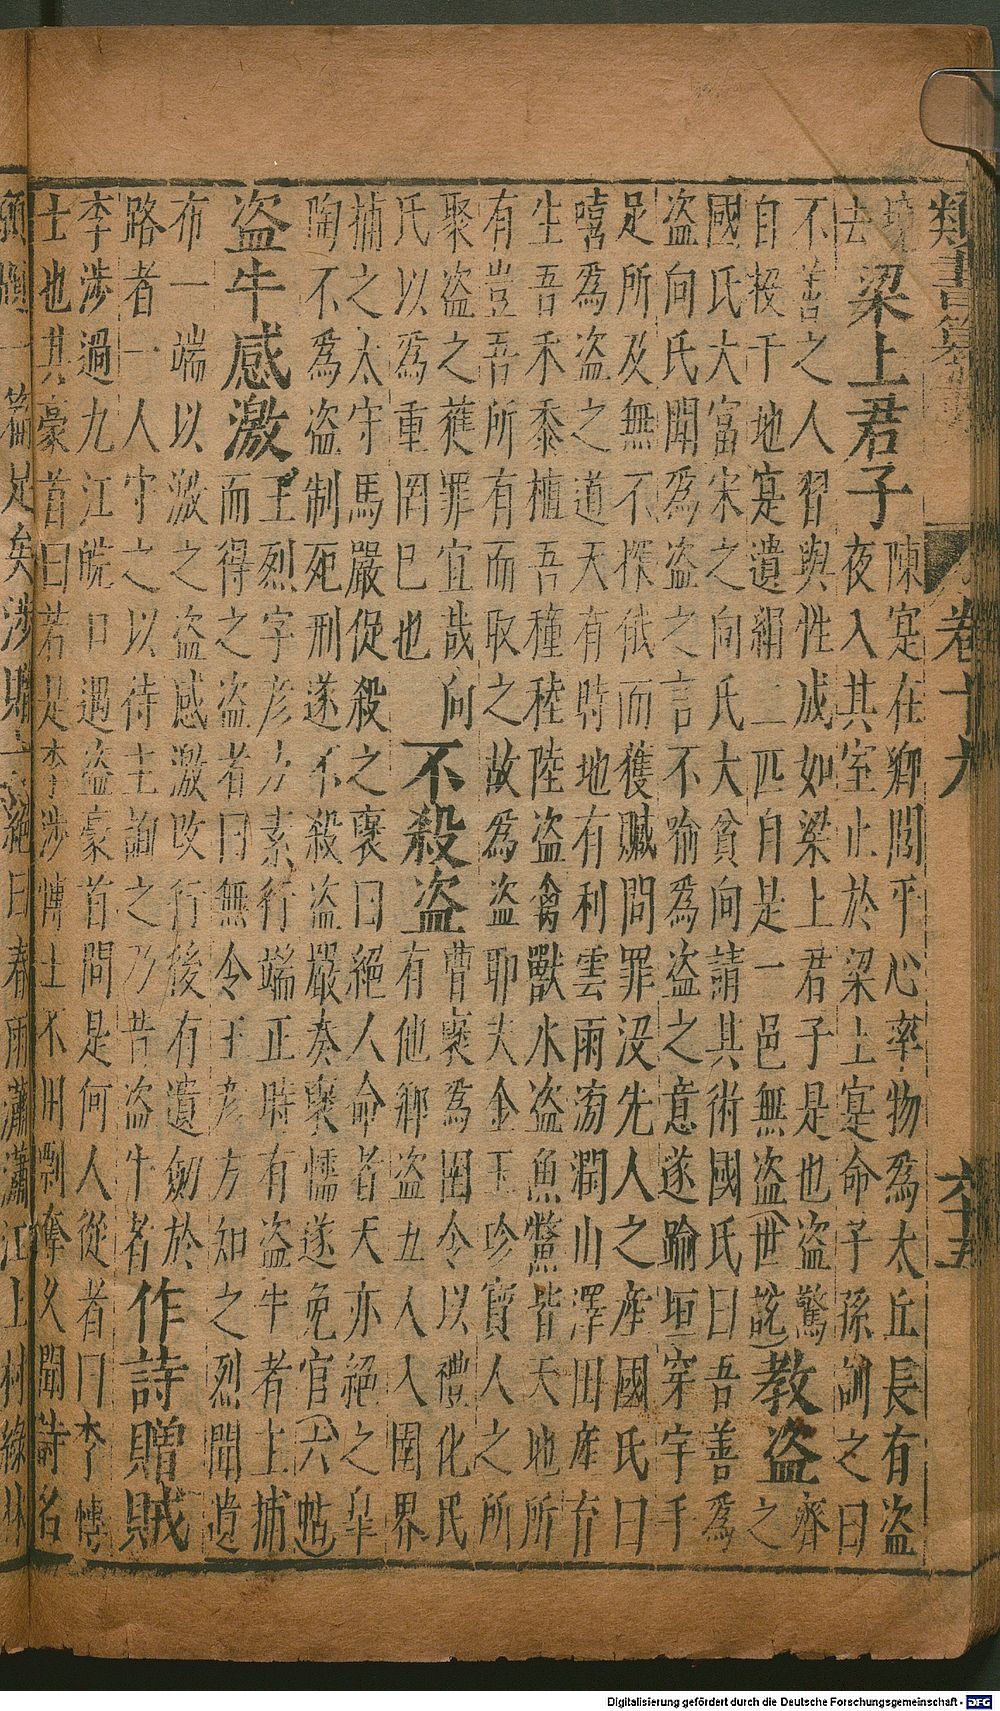 類書纂要
卷十九
六十五
境
去
梁上君子
陳寔在鄉閭平心率物為太丘長有盜
夜入其室止於梁上寔命子孫訓之曰
不善之人習與性成如梁上君子是也盜驚
自投于地寔遺絹二匹自是一邑無盜世說
教盜
齊
之
國氏大富宋之向氏大貧向請其術國氏曰吾善為
盜向氏聞為盜之言不喻為盜之意遂踰垣穿宇手
足所及無不探俄而獲贓問罪沒先人之產國氏曰
嘻為盜之道天有時地有利雲雨滂潤山澤田產育
生吾禾黍植吾穜稑陸盜禽獸水盜魚鱉皆天地所
有豈吾所有而取之故為盜耶夫金玉珍寶人之所
聚盜之蕹罪宜哉向
氏以為重罔已也
不殺盜
曹褒為圉令以禮化民
有他郡盜五人入圉界
捕之太守馬嚴促殺之褒曰絕人命者天亦絕之皐
陶不為盜制死刑遂不殺盜嚴奏褒懦遂免官六帖
盜牛感激
王烈字彥方素行端正時有盜牛者主捕
而得之盜者曰無令王彥方知之烈聞遺
布一端以激之盜感激改行後有遺劍於
路者一人守之以待主詢之乃昔盜牛者
作詩贈賊
李涉過九江皖口遇盜豪首問是何人從者曰李博
士也其豪首曰若是李涉博士不用剽奪久聞詩名
願題一篇足矣涉贈一絕曰春雨瀟瀟江上村綠林
Digitalisierung gefördert durch die Deutsche Forschungsgemeinschaft - DFG